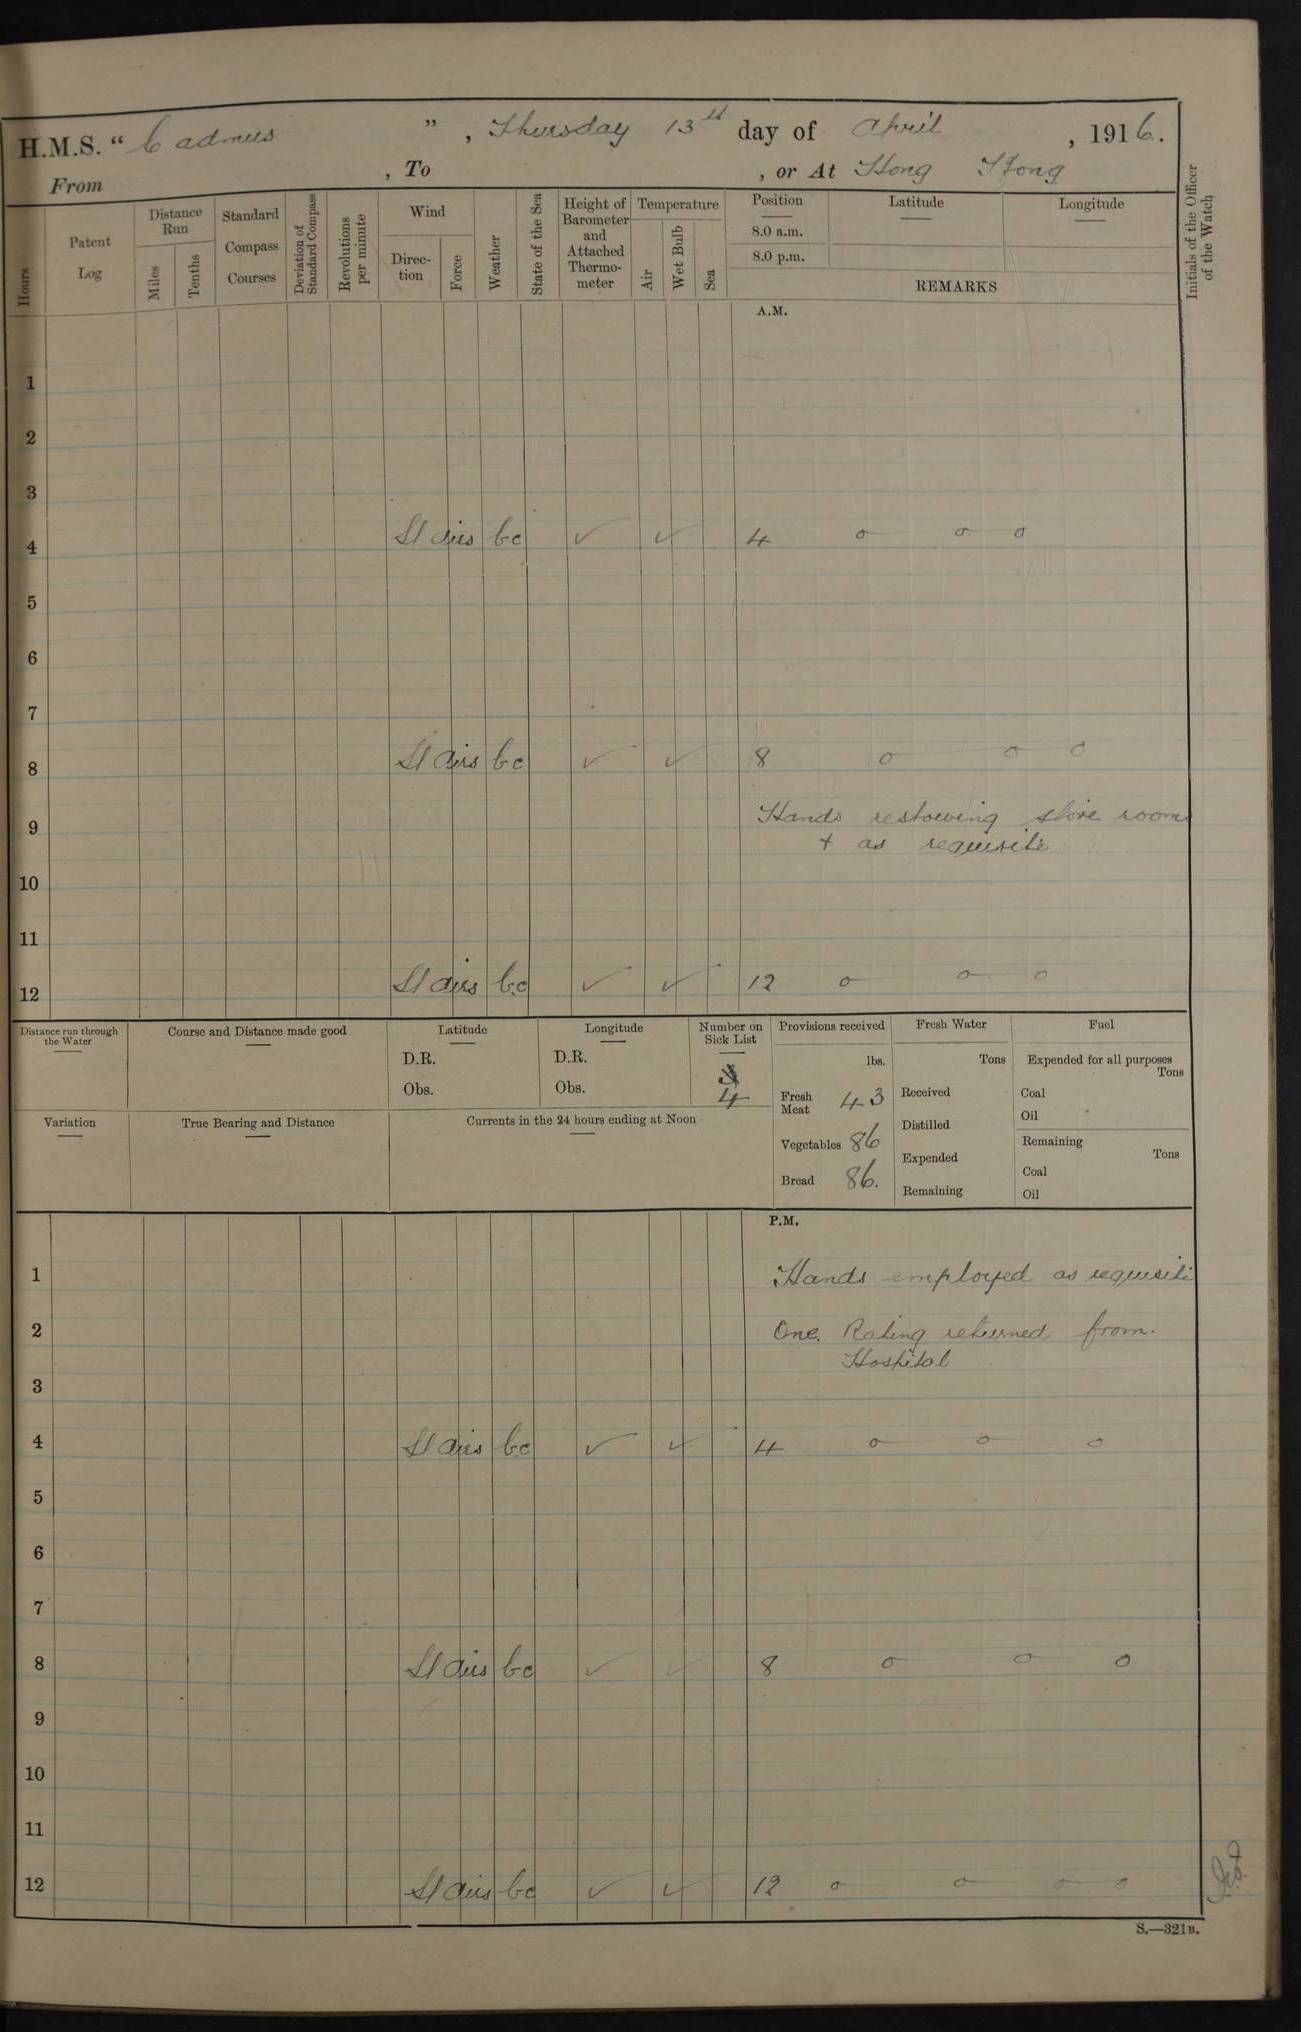 H.M.S. “Cadmus”, Thursday 13th day of April, 1916.
From , To , or At Hong Kong
Hours
Patent Log
Distance Run
Miles
Tenths
Standard Compass Courses
Deviation of Standard Compass
Revolutions per minute
Wind
Direction
Force
Weather
State of the Sea
Height of Barometer and Attached Thermometer
Temperature
Air
Wet Bulb
Sea
Position Latitude Longitude
8.0 a.m.
8.0 p.m.
REMARKS
Initials of the Officer of the Watch
A.M.
1
2
3
4 Lt airs bc ✓ ✓ 4 o o o
5
6
7
8 Lt airs bc ✓ ✓ 8 o o o
9 Hands restowing store rooms
+ as requisite
10
11
12 Lt airs bc ✓ ✓ 12 o o o
Distance run through the Water
Course and Distance made good
Latitude
D.R.
Obs.
Longitude
D.R.
Obs.
Number on Sick List
4
Provisions received
lbs.
Fresh Meat 43
Vegetables 86
Bread 86.
Fresh Water
Tons
Received
Distilled
Expended
Remaining
Fuel
Expended for all purposes
Tons
Coal
Oil
Remaining
Tons
Coal
Oil
Variation
True Bearing and Distance
Currents in the 24 hours ending at Noon
P.M.
1 Hands employed as requisite
2 One Rating returned from
Hospital
3
4 Lt airs bc ✓ ✓ 4 o o o
5
6
7
8 Lt airs bc ✓ ✓ 8 o o o
9
10
11
12 Lt airs bc ✓ ✓ 12 o o o o
S.—321B.